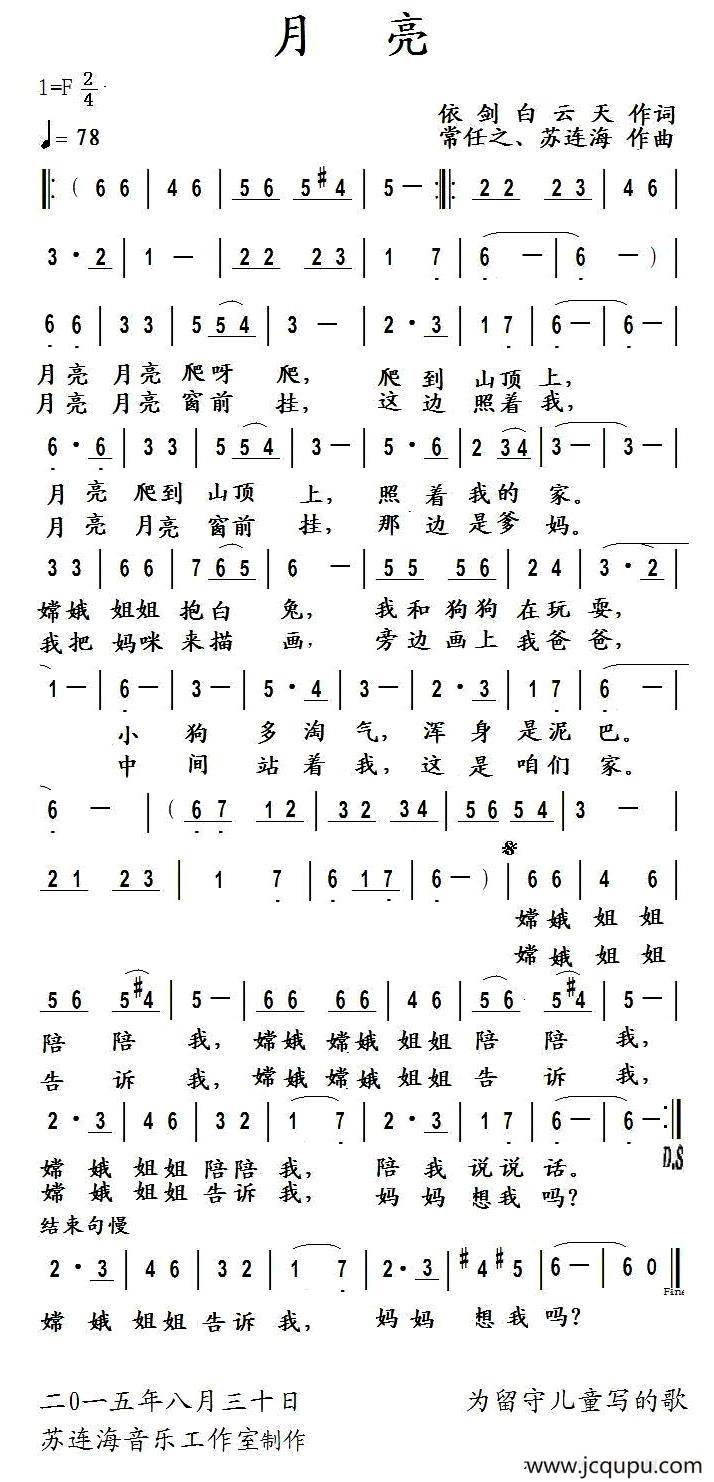 月 亮
1=F 2/4
依剑白云天 作词
♩= 78
常任之、苏连海 作曲
‖: ( 6 6 | 4 6 | 5 6 5 #4 | 5 — :‖: 2 2 2 3 | 4 6 |
3 · 2 | 1 — | 2 2 2 3 | 1 7 | 6 — | 6 — ) |
6 6 | 3 3 | 5 5 4 | 3 — | 2 · 3 | 1 7 | 6 — | 6 — |
月亮 月亮 爬呀 爬， 爬 到 山顶 上，
月亮 月亮 窗前 挂， 这 边 照着 我，
6 · 6 | 3 3 | 5 5 4 | 3 — | 5 · 6 | 2 3 4 | 3 — | 3 — |
月 亮 爬到 山顶 上， 照 着 我的 家。
月 亮 月亮 窗前 挂， 那 边 是爹 妈。
3 3 | 6 6 | 7 6 5 | 6 — | 5 5 5 6 | 2 4 | 3 · 2 |
嫦娥 姐姐 抱白 兔， 我和狗狗 在玩 耍，
我把 妈咪 来描 画， 旁边画上 我爸 爸，
1 — | 6 — | 3 — | 5 · 4 | 3 — | 2 · 3 | 1 7 | 6 — |
小 狗 多 淘 气， 浑 身 是泥 巴。
中 间 站 着 我， 这 是 咱们 家。
6 — | ( 6 7 1 2 | 3 2 3 4 | 5 6 5 4 | 3 — |
2 1 2 3 | 1 7 | 6 1 7 | 6 — ) | 𝄋 6 6 | 4 6 |
嫦娥 姐姐
嫦娥 姐姐
5 6 5 #4 | 5 — | 6 6 6 6 | 4 6 | 5 6 5 #4 | 5 — |
陪 陪 我， 嫦娥 嫦娥 姐姐 陪 陪 我，
告 诉 我， 嫦娥 嫦娥 姐姐 告 诉 我，
2 · 3 | 4 6 | 3 2 | 1 7 | 2 · 3 | 1 7 | 6 — | 6 — :‖
D.S
嫦 娥 姐姐 陪陪 我， 陪 我 说说 话。
嫦 娥 姐姐 告诉 我， 妈 妈 想我 吗？
结束句慢
2 · 3 | 4 6 | 3 2 | 1 7 | 2 · 3 | #4 #5 | 6 — | 6 0 ‖
Fine
嫦 娥 姐姐 告诉 我， 妈 妈 想我 吗？
二0一五年八月三十日 为留守儿童写的歌
苏连海音乐工作室制作
www.jcqupu.com